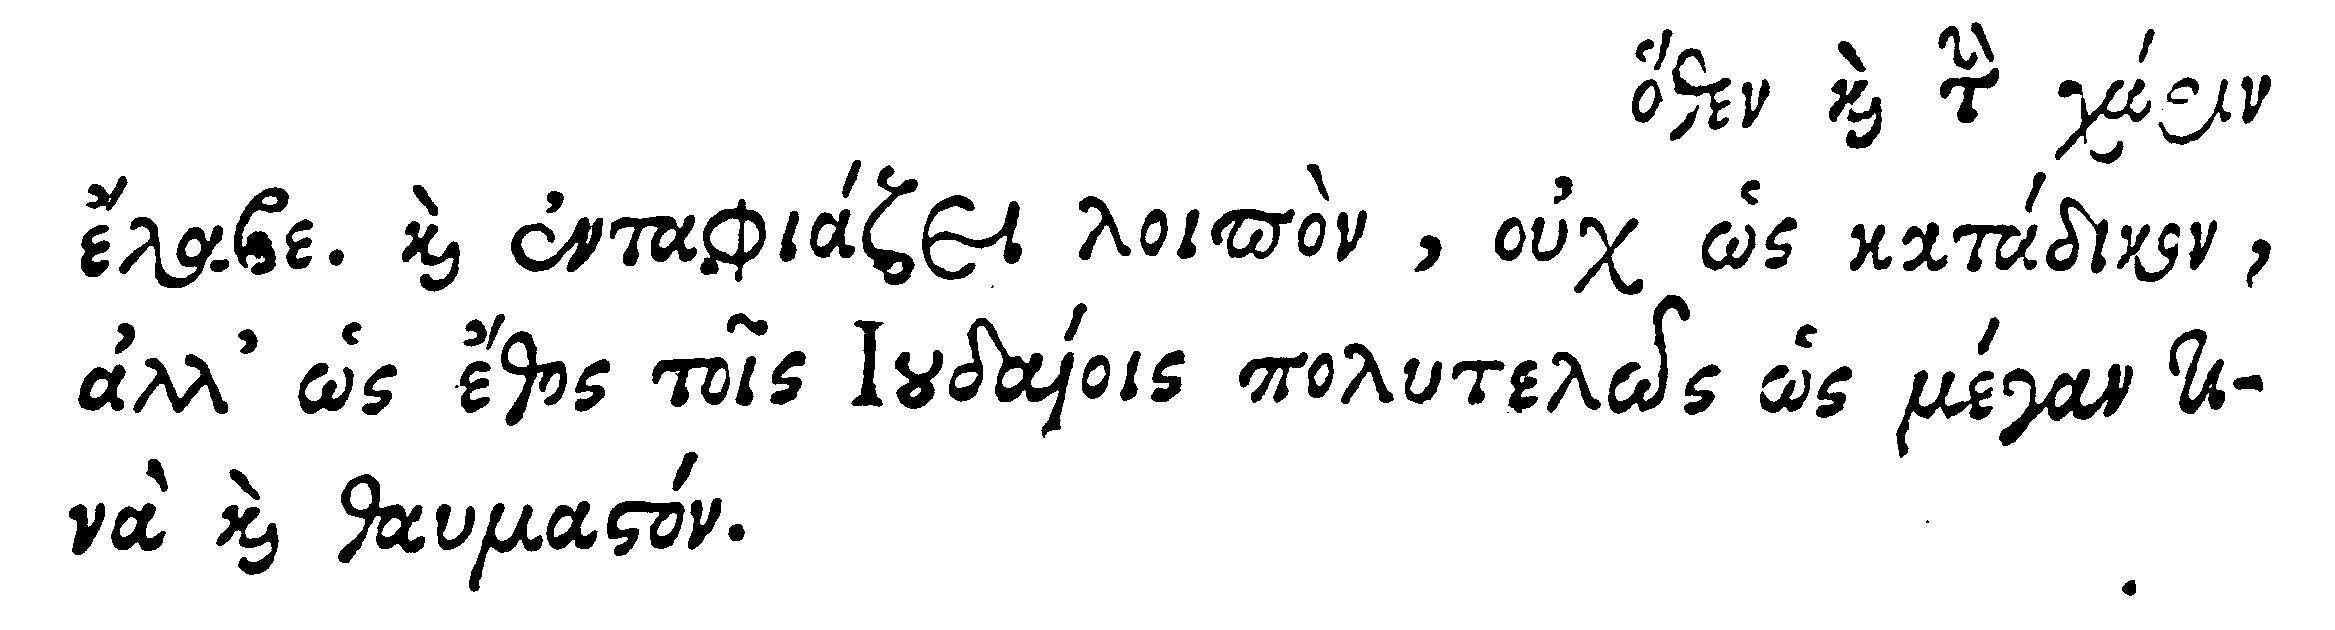 ὅθεν καὶ τὴν χάριν
ἔλαβε. καὶ ἐνταφιάζει λοιπὸν, οὐχ ὡς κατάδικον,
ἀλλ' ὡς ἔθος τοῖς Ιουδαίοις πολυτελῶς ὡς μέγαν τι-
νὰ καὶ θαυμαστόν.